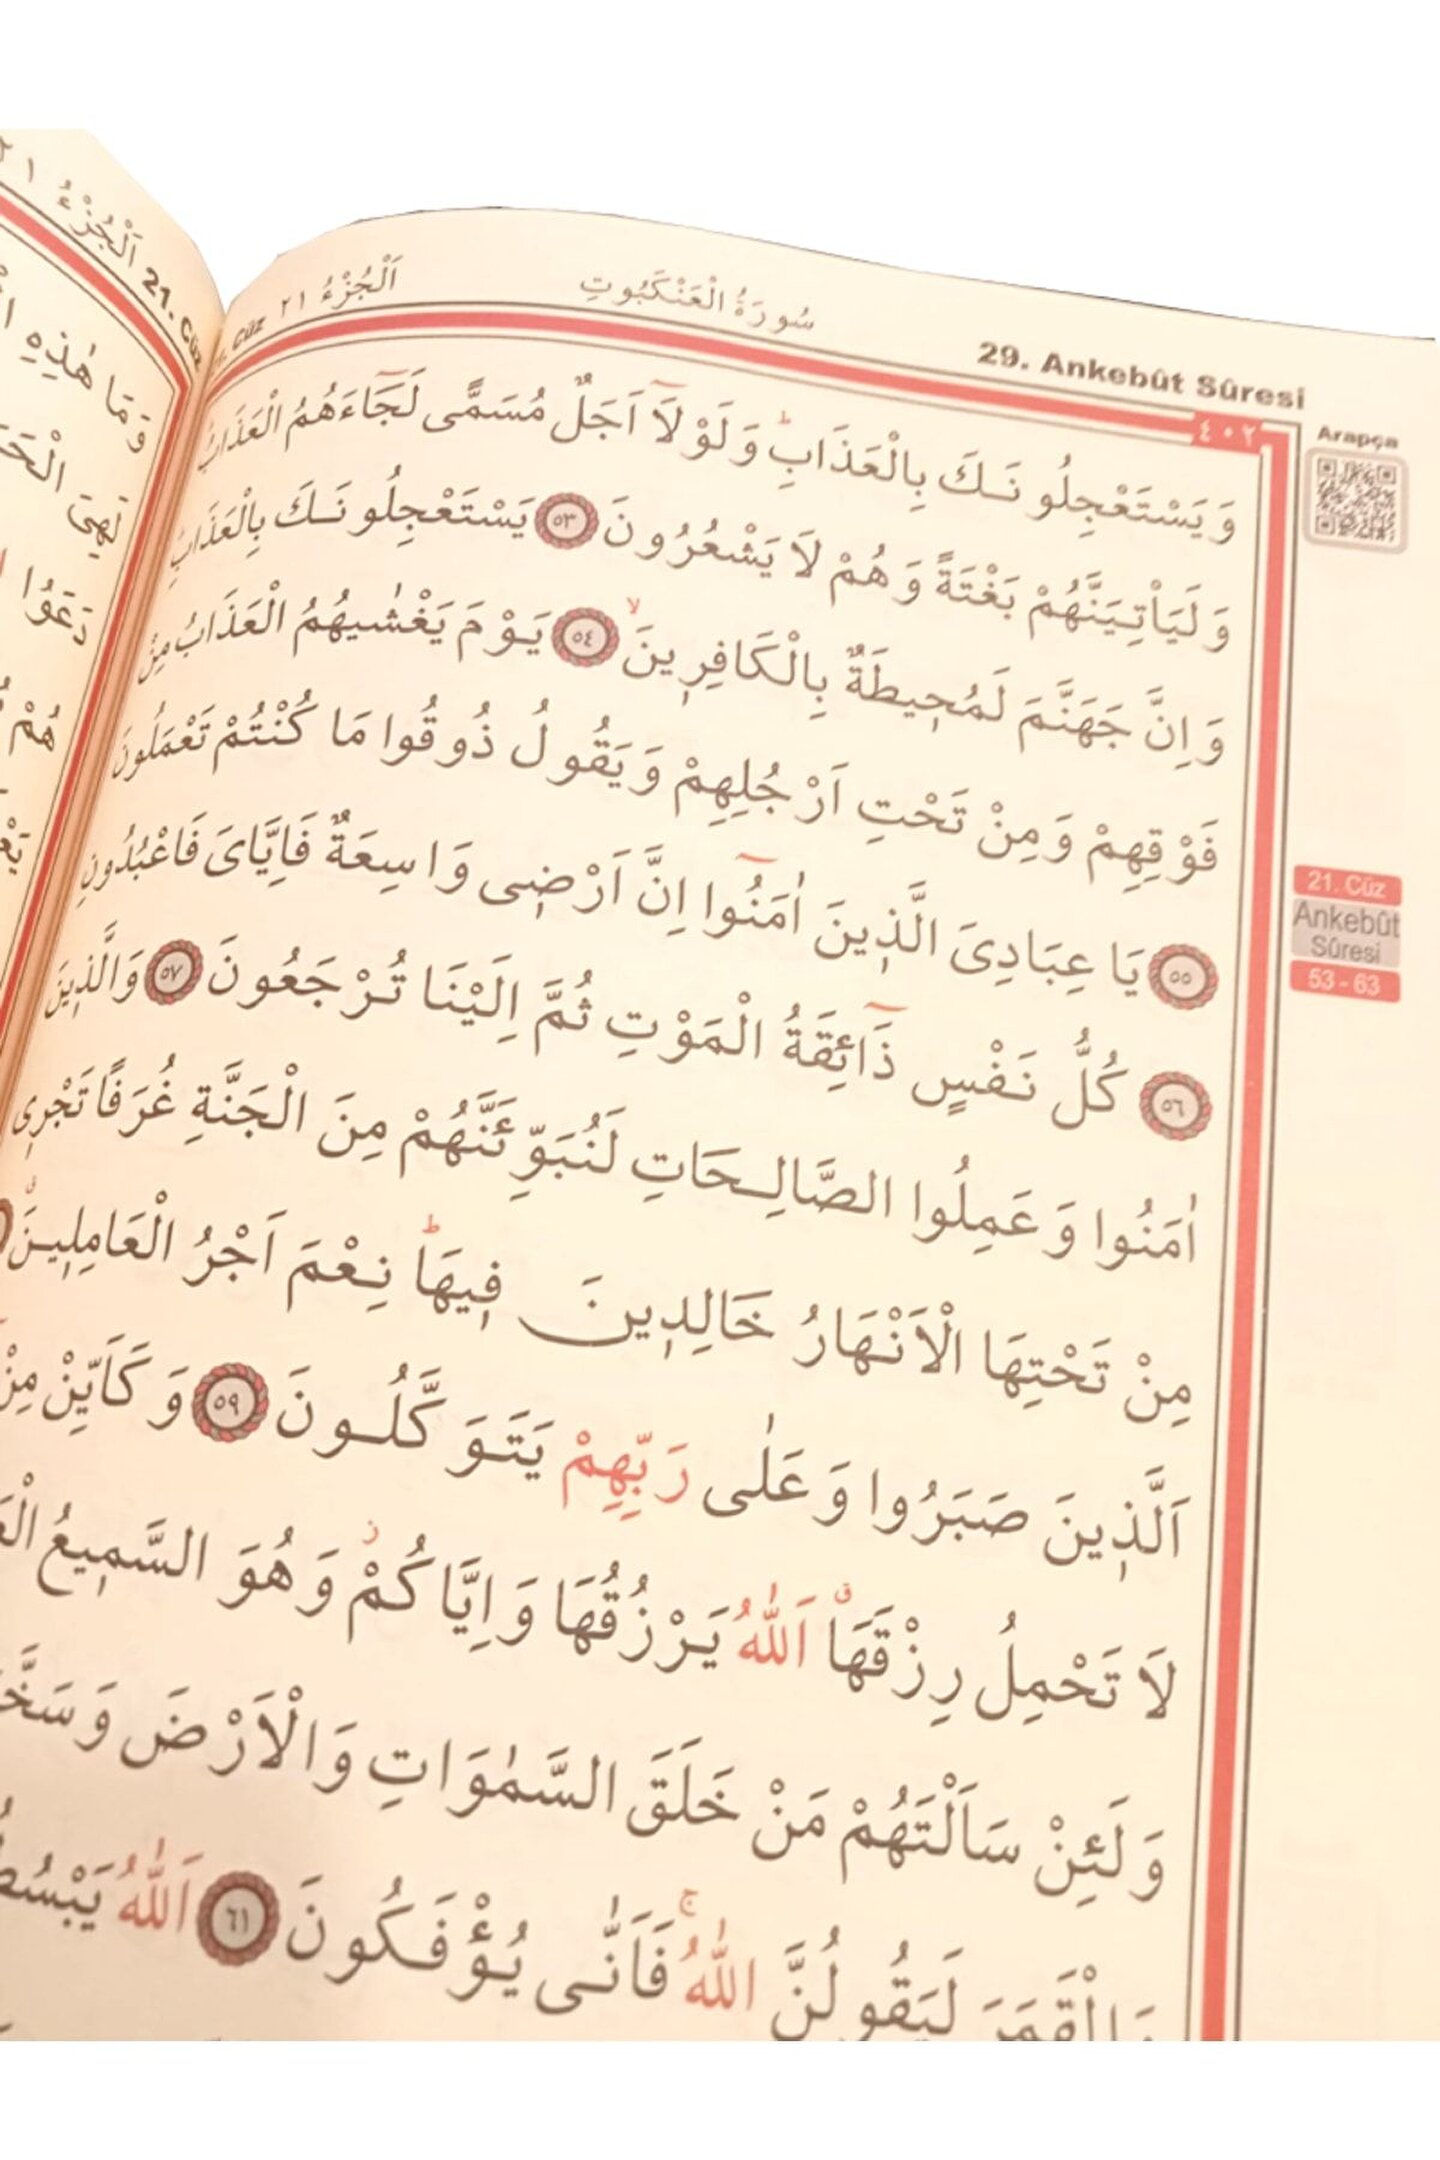 اَلْجُزْءُ ٢١
21. Cüz
وَمَا هٰذِهِ
لَهِيَ الْحَ
دَعَوُا
هُمْ
Cüz
اَلْجُزْءُ ٢١
سُورَةُ الْعَنْكَبُوتِ
29. Ankebût Sûresi
٤٠٢
Arapça
وَيَسْتَعْجِلُونَكَ بِالْعَذَابِۜ وَلَوْلَٓا اَجَلٌ مُسَمًّى لَجَٓاءَهُمُ الْعَذَابُ
وَلَيَأْتِيَنَّهُمْ بَغْتَةً وَهُمْ لَا يَشْعُرُونَ ﴿٥٣﴾ يَسْتَعْجِلُونَكَ بِالْعَذَابِ
وَاِنَّ جَهَنَّمَ لَمُحِيطَةٌ بِالْكَافِرِينَۙ ﴿٥٤﴾ يَوْمَ يَغْشٰيهُمُ الْعَذَابُ مِنْ
فَوْقِهِمْ وَمِنْ تَحْتِ اَرْجُلِهِمْ وَيَقُولُ ذُوقُوا مَا كُنْتُمْ تَعْمَلُونَ
﴿٥٥﴾ يَا عِبَادِيَ الَّذِينَ اٰمَنُٓوا اِنَّ اَرْضِى وَاسِعَةٌ فَاِيَّاىَ فَاعْبُدُونِ
﴿٥٦﴾ كُلُّ نَفْسٍ ذَٓائِقَةُ الْمَوْتِ ثُمَّ اِلَيْنَا تُرْجَعُونَ ﴿٥٧﴾ وَالَّذِينَ
اٰمَنُوا وَعَمِلُوا الصَّالِحَاتِ لَنُبَوِّئَنَّهُمْ مِنَ الْجَنَّةِ غُرَفًا تَجْرِى
مِنْ تَحْتِهَا الْاَنْهَارُ خَالِدِينَ فِيهَاۜ نِعْمَ اَجْرُ الْعَامِلِينَۗ
اَلَّذِينَ صَبَرُوا وَعَلٰى رَبِّهِمْ يَتَوَكَّلُونَ ﴿٥٩﴾ وَكَاَيِّنْ مِنْ
لَا تَحْمِلُ رِزْقَهَاۗ اَللّٰهُ يَرْزُقُهَا وَاِيَّاكُمْۘ وَهُوَ السَّمِيعُ
وَلَئِنْ سَاَلْتَهُمْ مَنْ خَلَقَ السَّمٰوَاتِ وَالْاَرْضَ وَسَخَّ
وَالْقَمَرَ لَيَقُولُنَّ اللّٰهُۚ فَاَنّٰى يُؤْفَكُونَ ﴿٦١﴾ اَللّٰهُ يَبْسُطُ
21. Cüz
Ankebût
Sûresi
53 - 63